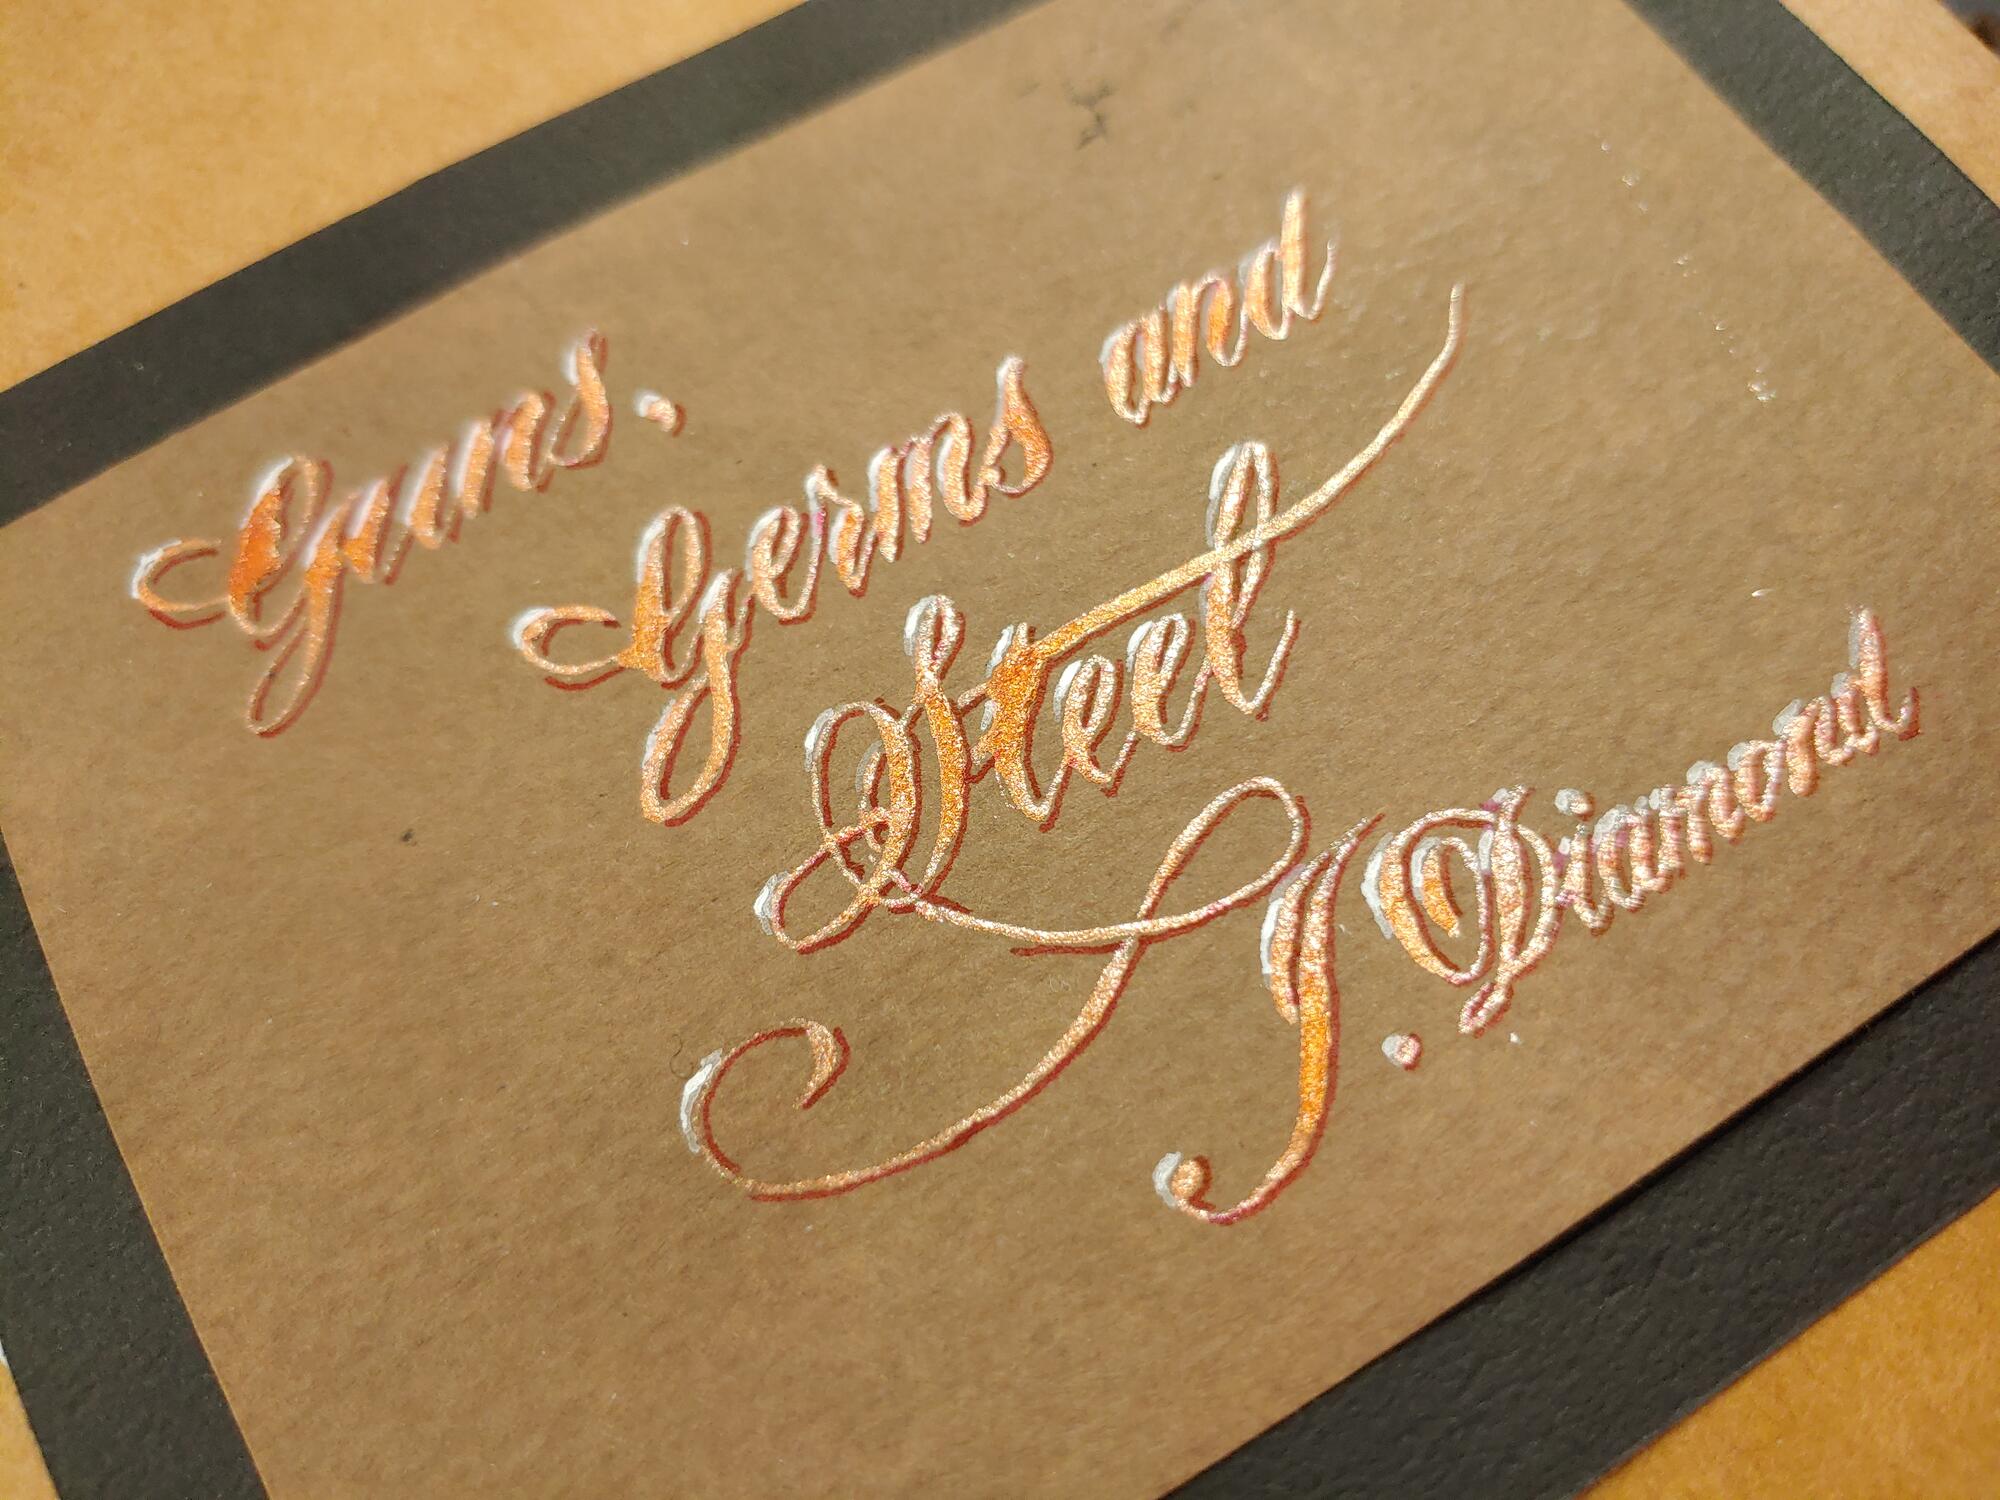 Guns.
Germs and
Steel
J. Diamond